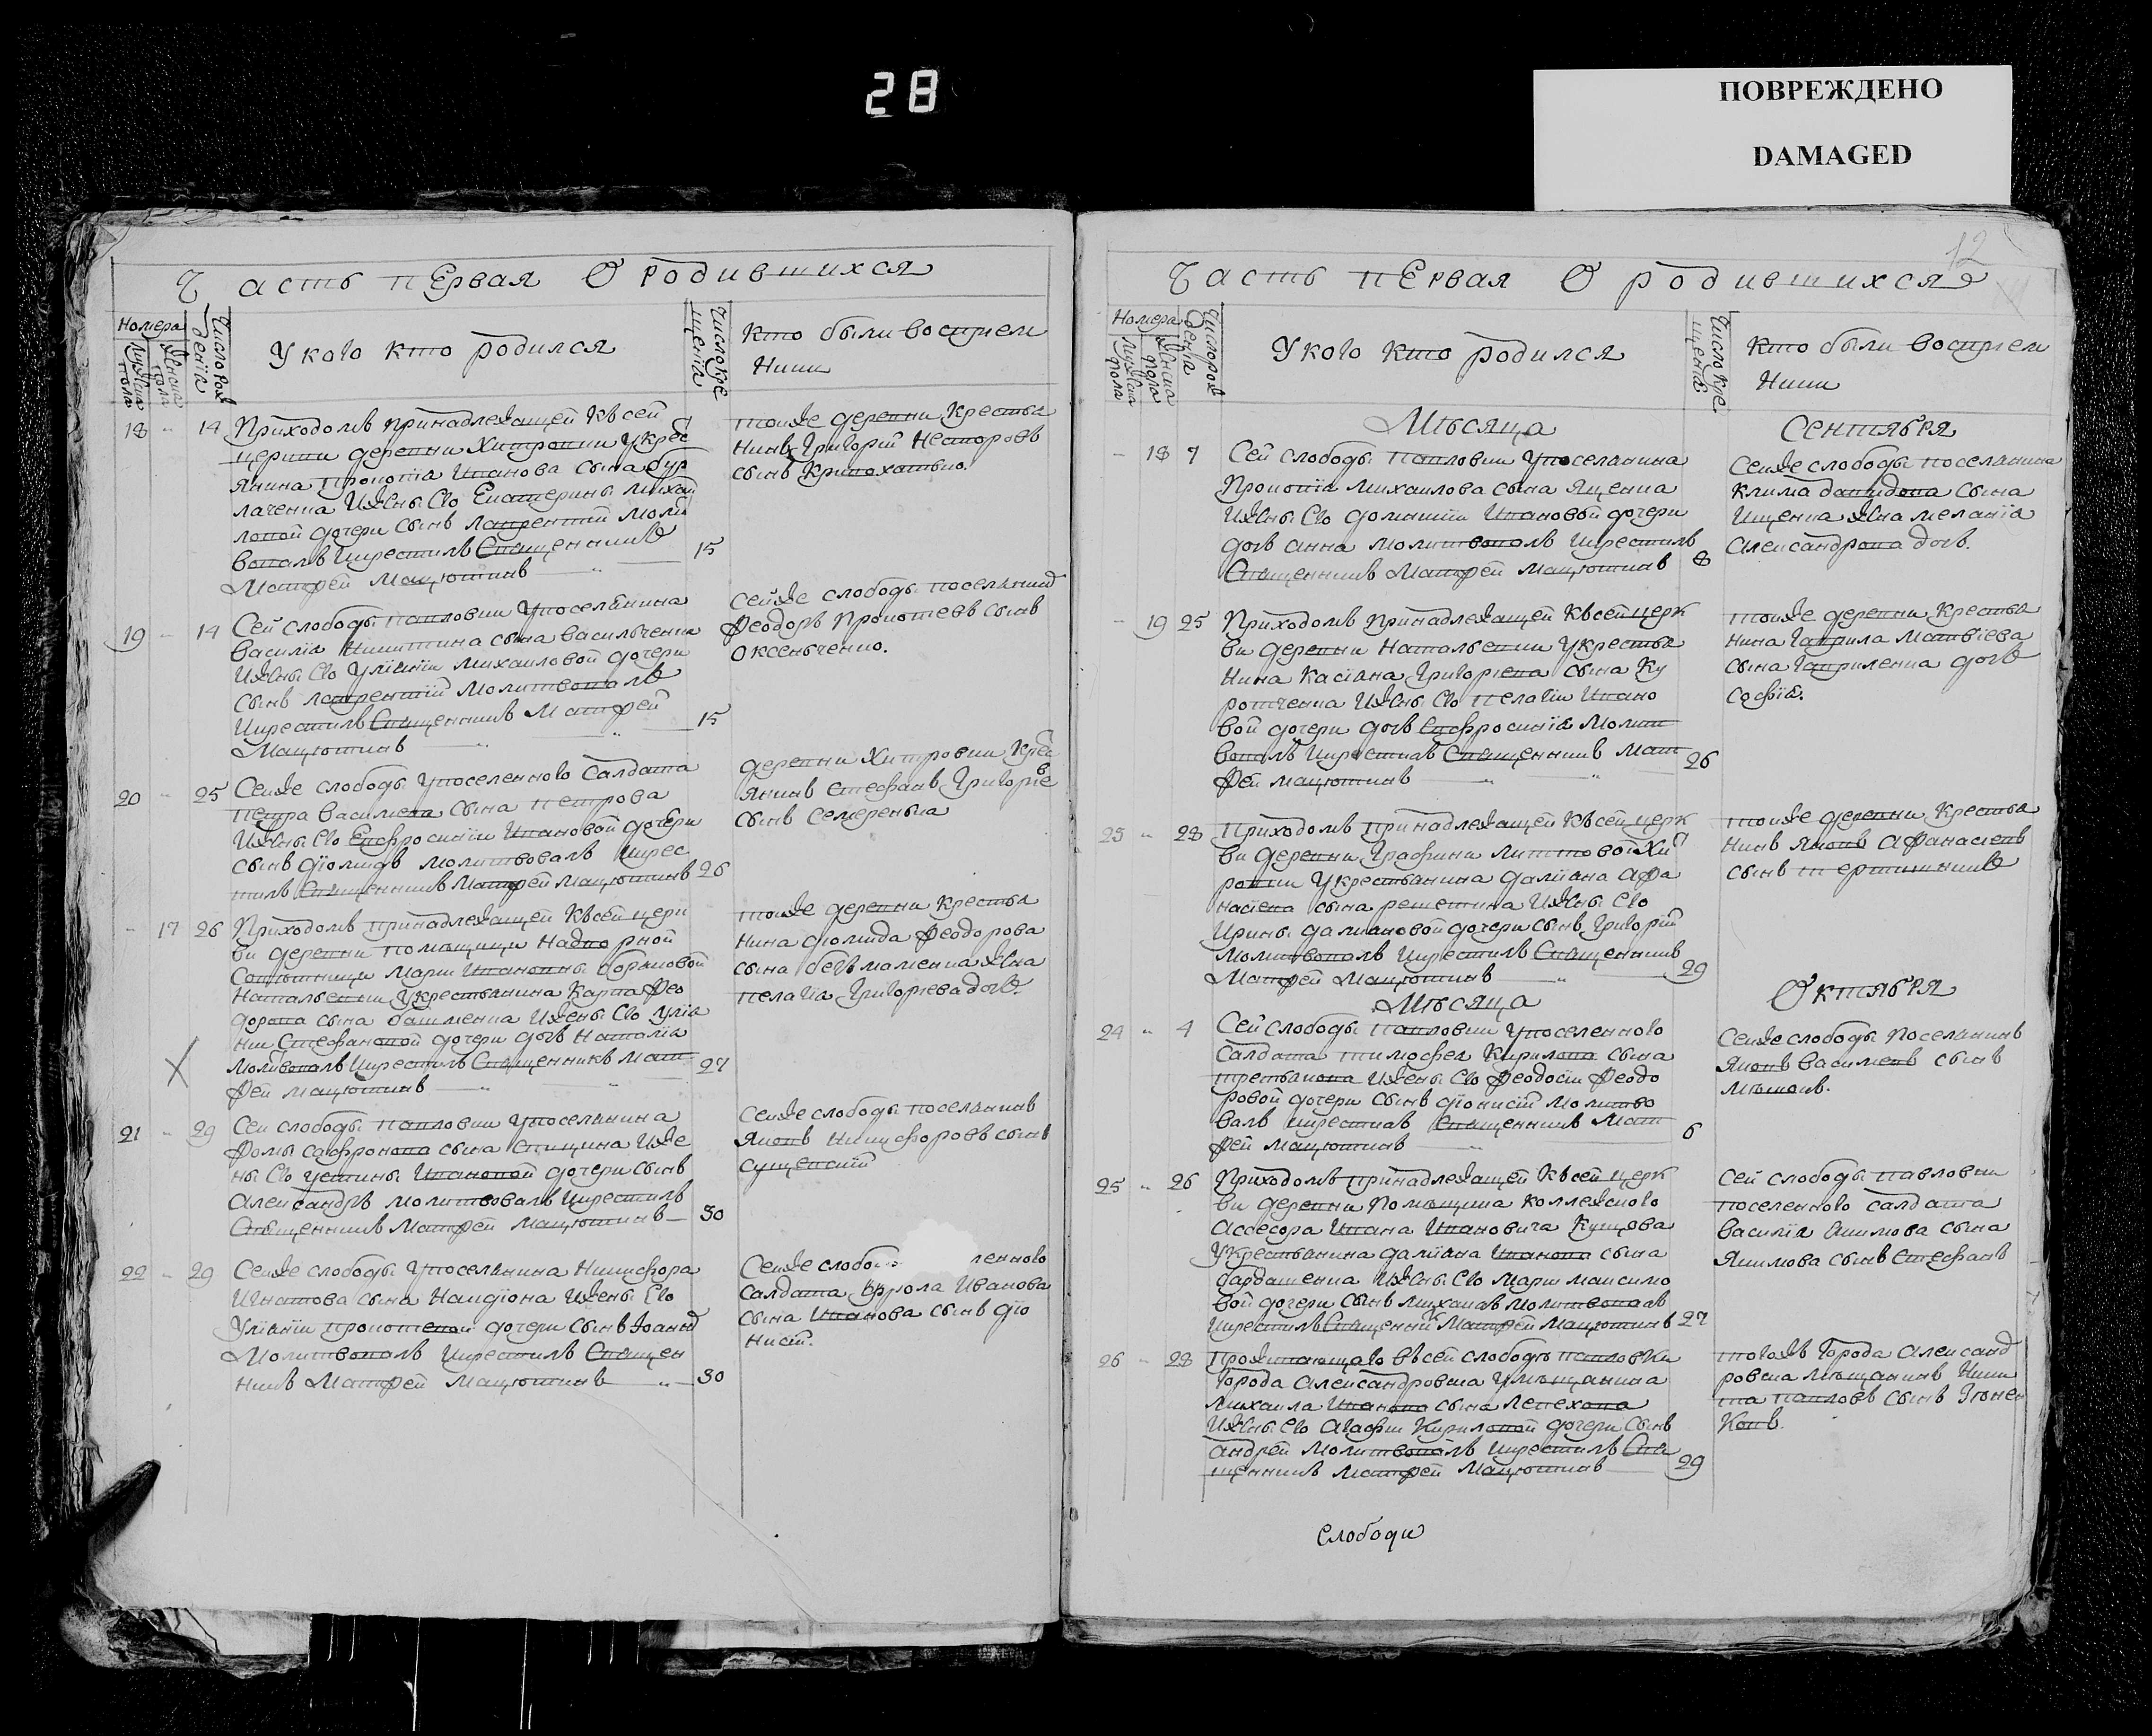 28
ПОВРЕЖДЕНО
DAMAGED
12
Часть первая О родившихся
Номера
Мужеска пола
Женска пола
Число рождения
У кого кто родился
Число крещения
Кто были восприем
ники
18 14
Приходомъ принадлежащей къ сей
деревни Хитровки
Янина Прокопїа Иванова сына
лаченка Ижены Его Екатерины Михаи
ловой дочери сынъ Лаврентїй моли
твовалъ Икрестилъ Священникъ
Матфей Мацютинъ 15
тоиже деревни Крестья
нинъ Григорїй Несторовъ
сынъ Кривохатько.
19 14
Сей слободы Павловки Упоселянина
Василїа Никитина сына Васильченка
Ижены Его Улїянїи Михаиловой дочери
сынъ Лаврентїй Молитвовалъ
Икрестилъ Священникъ Матфей
Мацютинъ 15
Сейже слободы поселянинъ
Феодоръ Прокофеевъ сынъ
Оксенченко.
20 25
Сейже слободы Упоселенного Салдата
Петра Василева Сына Петрова
Ижены Его Евфросинїи Ивановой дочери
сынъ дїомидъ молитвовалъ Икрес
тилъ Священникъ Матфей Мацютинъ 26
деревни Хитровки Крес
янинъ Стефанъ Григорїе
сынъ Семеренька
17 26
Приходомъ принадлежащей Къ сей церк
ви деревни помѣщици Надворной
Совѣтници Марїи Ивановны
Натальевки Укрестьянина Карпа Фео
дорова сына Ижены Его Улїа
нїи Стефановой дочери дочъ Наталїа
Молитвовалъ Икрестилъ Священникъ Мат
фей Мацютинъ 27
тоиже деревни Крестья
нина дїомида Феодорова
сына жена
Пелагїа Григорїева дочъ.
21 29
Сей слободы Павловки Упоселянина
Фомы Сафронова сына Ижe
ны Его Устины Ивановой дочери сынъ
Александръ молитвовалъ Икрестилъ
Священникъ Матфей Мацютинъ 30
Сейже слободы поселянинъ
Яковъ Никифоровъ сынъ
Сущевскїй
22 29
Сейже слободы Упоселянина Никифора
Игнатова сына Ижены Его
Улїанїи Прокофевой дочери сынъ Іоанъ
Молитвовалъ Икрестилъ Священ
никъ Матфей Мацютинъ 30
Сейже слобо ленного
Салдата Фрола Иванова
сына Иванова сынъ дїо
нисїй.
Часть первая О родившихся
Номера
Мужеска пола
Женска пола
Число рождения
У кого кто родился
Число крещения
Кто были восприем
ники
Мѣсяца Сентября
18 7
Сей слободы Павловки Упоселянина
Прокопїа Михаилова сына Яценка
Ижены Его домникїи Ивановой дочери
дочъ Анна Молитвовалъ Икрестилъ
Священникъ Матфей Мацютинъ 8
Сейже слободы поселянина
Клима давидова сына
Ищенка жена меланїа
Александрова дочъ.
19 25
Приходомъ принадлежащей Къ сей церк
ви деревни Натальевки Укрестья
нина Касїана Григорїева сына Ку
ротченка Ижены Его Пелагїи Ивано
вой дочери дочъ Евфросинїа Молит
вовалъ Икрестилъ Священникъ Мат
фей Мацютинъ 26
тоиже деревни Крестья
нина Гаврила Матвїева
сына Гавриленка дочъ
Софїа.
23 28
Приходомъ принадлежащей Къ сей церк
ви деревни Графини Литтовой Хит
ровки Укрестьянина далїана Афа
насїева сына решетила Ижены Его
Ирины далиановой дочери сынъ Григорїй
Молитвовалъ Икрестилъ Священникъ
Матфей Мацютинъ 29
тоиже деревни Крестья
нинъ Яковъ Афанасїевъ
сынъ
Мѣсяца Октября
24 4
Сей Слободы Павловки Упоселенного
Салдата тимофея Кирилова сына
третьякова Ижены Его Феодосїи Феодо
ровой дочери сынъ дїонисїй Молитво
валъ Икрестилъ Священникъ Мат
фей Мацютинъ 6
Сейже слободы Поселянинъ
Яковъ Василевъ сынъ
25 26
Приходомъ принадлежащей Къ сей церк
ви деревни Помѣщика коллежского
Ассесора Ивана Ивановича Куцова
Укрестьянина далїана Иванова сына
бардашенка Ижены Его Марїи максимо
вой дочери сынъ Михаилъ молитвовалъ
Икрестилъ Священникъ Матфей Мацютинъ 27
Сей слободы Павловки
поселенного салдата
Василїя Якимова сына
Якимова сынъ Стефанъ
26 28
Проживающаго въ сей слободѣ Павловки
города Александровска Умѣщанина
Михаила Иванова сына Лепехова
Ижены Его Агафїи Кириловой дочери Сынъ
андрей Молитвовалъ Икрестилъ Свя
щенникъ Матфей Мацютинъ 29
тогожъ города Александ
ровска мѣщанинъ Ники
та Павловъ сынъ
ковъ.
Слободи